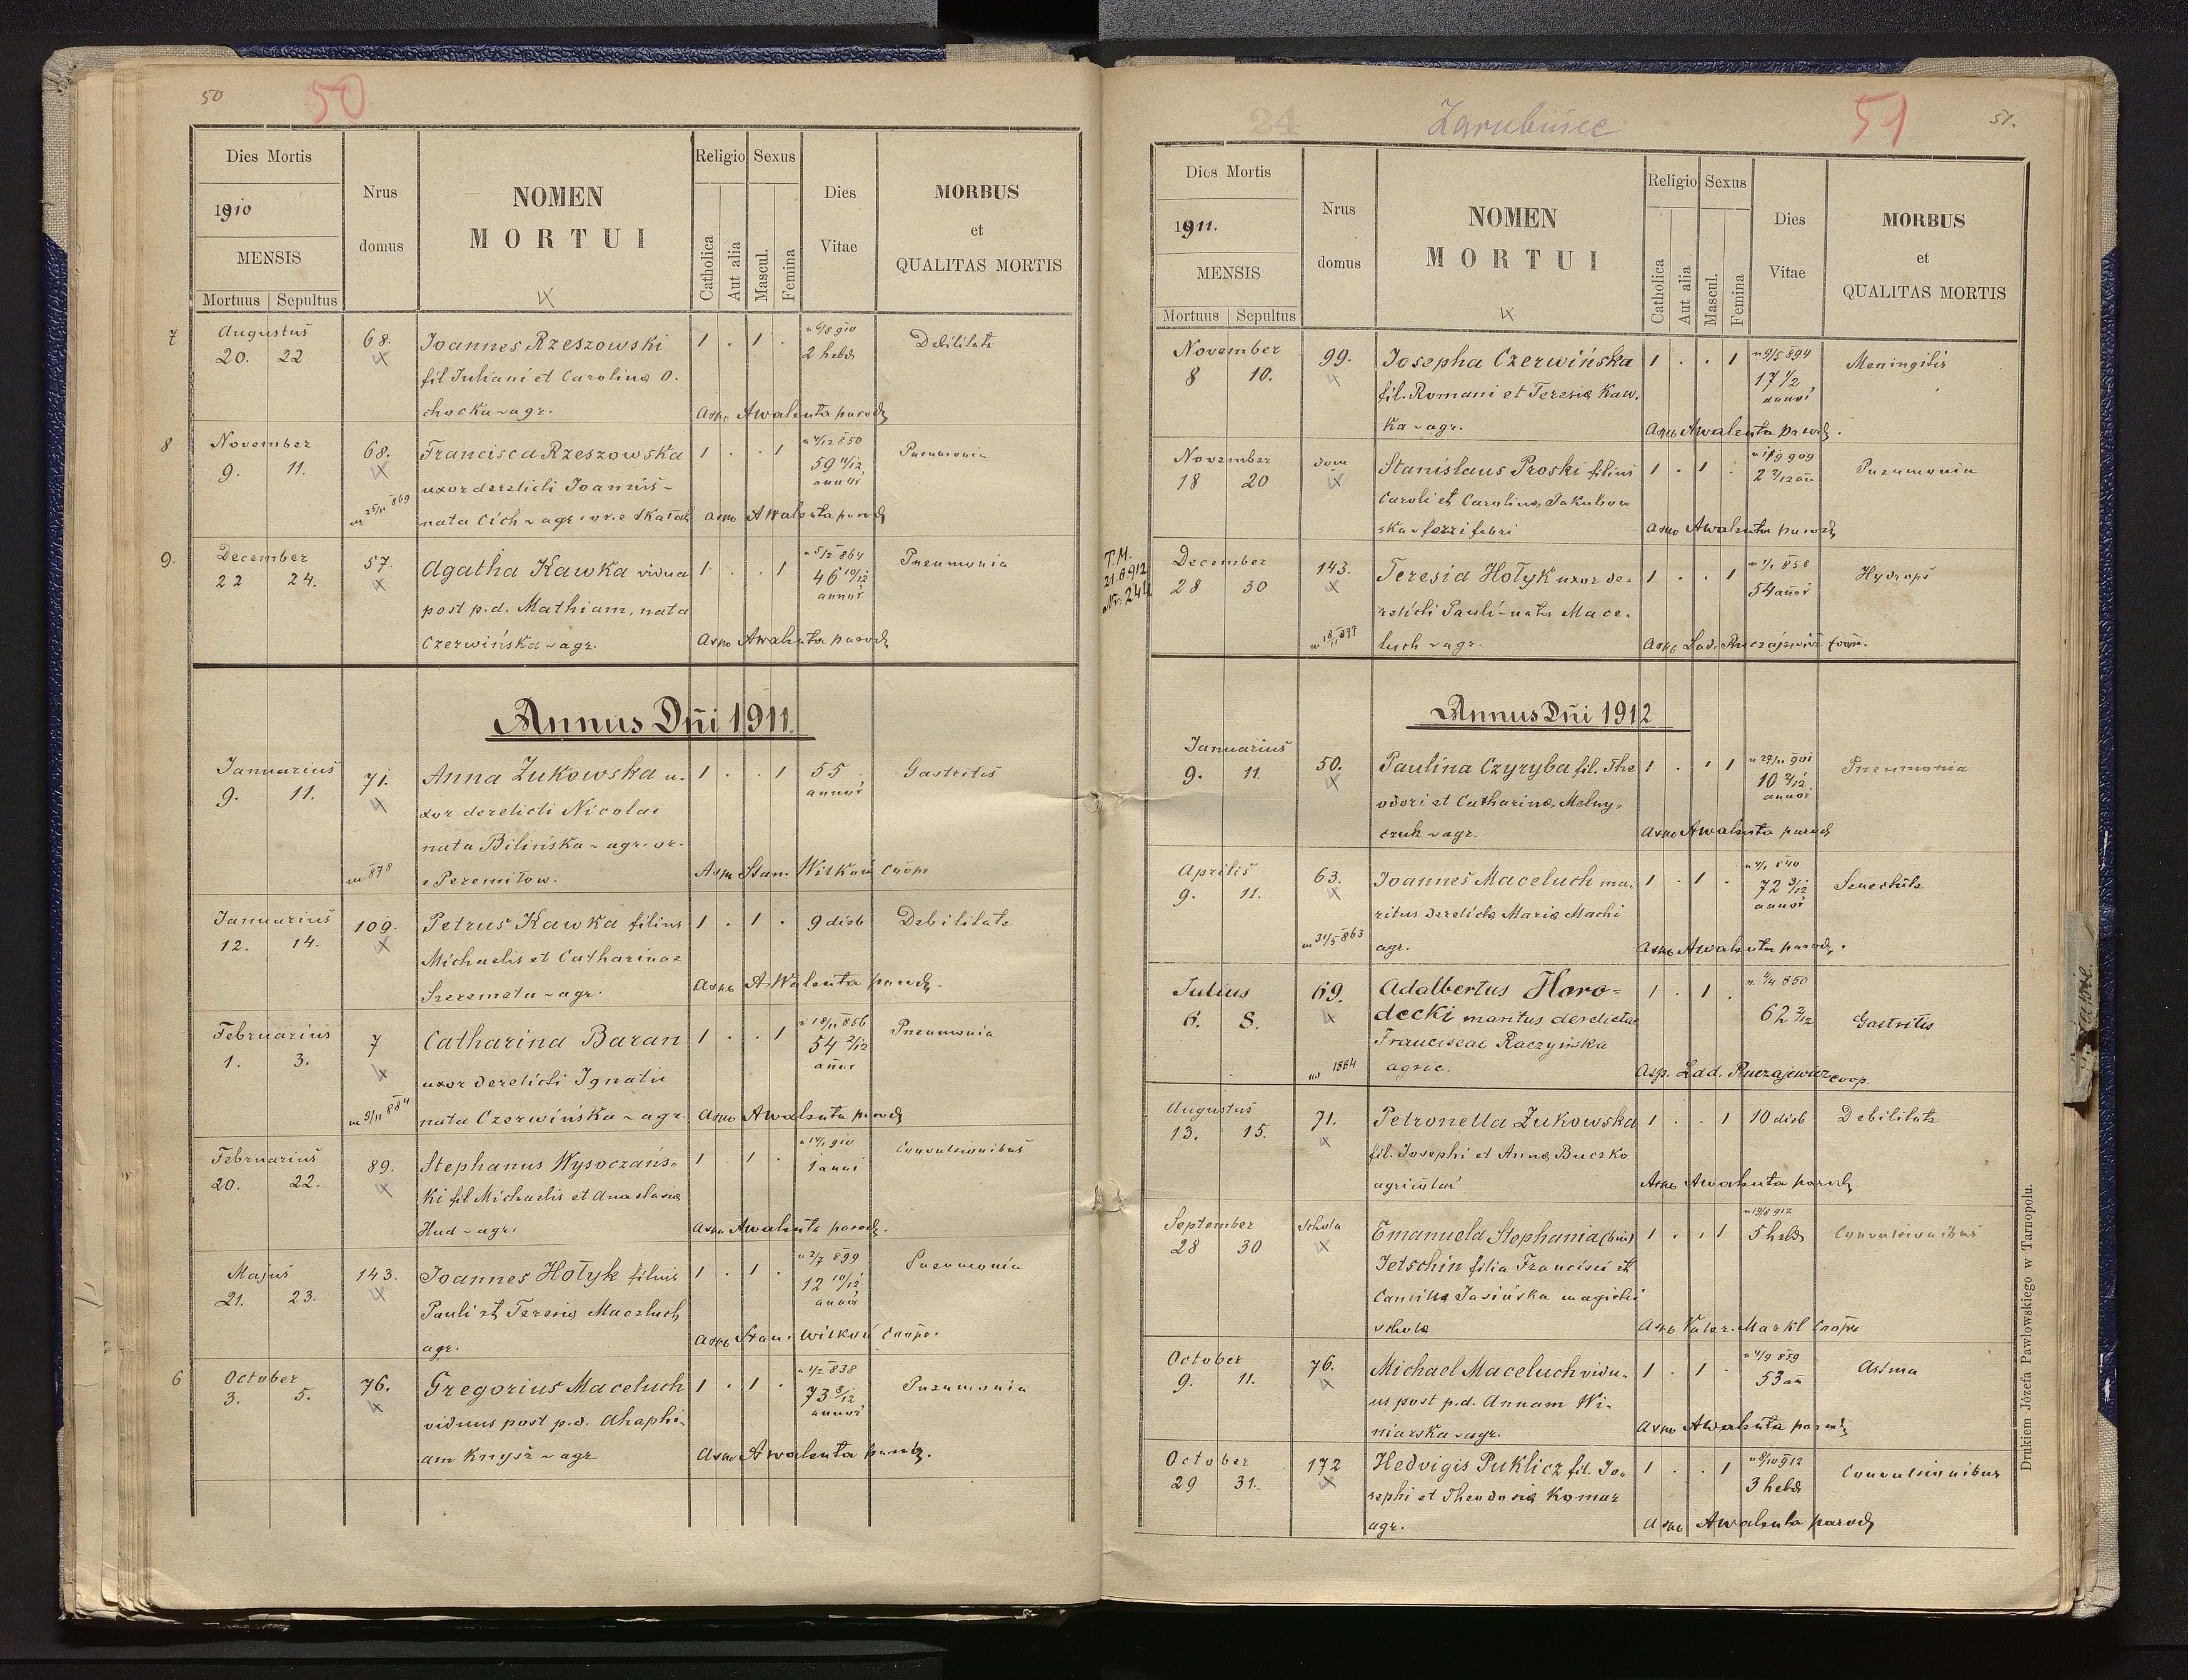 50
50
Dies Mortis
1910
MENSIS
Mortuus Sepultus
Nrus
domus
NOMEN
MORTUI
Religio Sexus
Catholica
Aut alia
Mascul.
Femina
Dies
Vitae
MORBUS
et
QUALITAS MORTIS
7 Augustus
20. 22 68. Joannes Rzeszowski 1 . 1 . n 6/8 910
2 hebd Debilitate
fil Juliani et Carolina O.
chocka ~ agr. Aspo A Walenta paroch
8 November
9. 11. 68. Francisca Rzeszowska 1 . . 1 n 4/12 850
59 11/12
annor Pneumonia
uxor derelicti Joannis ~
m 25/11 869 nata Cich ~ agr Aspo A Walenta paroch
9. December
22 24. 57. Agatha Kawka vidua 1 . . 1 n 5/2 864
46 10/12
annor Pneumonia
post p.d. Mathiam, nata
Czerwińska ~ agr. Aspo A Walenta paroch
Annus Dñi 1911.
Januarius
9. 11. 71. Anna Żukowska u- 1 . . 1 55
annor Gastritis
xor derelicti Nicolai
nata Bilińska ~ agr. or.
m 878 e Peremiłow. Aspo Stan. Witkoń coop
Januarius
12. 14. 109. Petrus Kawka filius 1 . 1 . 9 dieb Debilitate
Michaelis et Catharinae
Szeremeta ~ agr. Aspo A Walenta paroch.
Februarius
1. 3. 7 Catharina Baran 1 . . 1 n 18/11 856
54 2/12
annor Pneumonia
uxor derelicti Ignatii
m 9/11 884 nata Czerwińska ~ agr. Aspo A Walenta paroch
Februarius
20. 22. 89. Stephanus Wysoczańs- 1 1 . n 14/1 910
1 anni Convulsionibus
ki fil Michaelis et Anastasia
Hud ~ agr. Aspo A Walenta paroch.
Majus
21. 23. 143. Joannes Hołyk filius 1 . 1 . n 2/7 899
12 10/12
annor Pneumonia
Pauli et Teresia Maceluch
agr. Aspo Stan. Witkoń coop.
6 October
3. 5. 76. Gregorius Maceluch 1 . 1 . n 1/2 838
73 8/12
annor Pneumonia
viduus post p.d. Ahaphi-
am Knysz ~ agr Aspo A Walenta paroch.
24 Zarubińce 51 51.
Dies Mortis
1911.
MENSIS
Mortuus Sepultus
Nrus
domus
NOMEN
MORTUI
Religio Sexus
Catholica
Aut alia
Mascul.
Femina
Dies
Vitae
MORBUS
et
QUALITAS MORTIS
November
8 10. 99. Josepha Czerwińska 1 . . 1 n 9/5 894
17 1/2
annor Meningitis
fil. Romani et Teresia Kaw-
ka ~ agr. Aspo A Walenta paroch.
November
18 20 dom Stanislaus Proski filius 1 . 1 . 909
2 2/12 an Pneumonia
Caroli et Carolina Jakubow
ska ~ ferri fabri Aspo A Walenta paroch
T.M.
21.6.912
Nr. 244
December
28 30 143. Teresia Hołyk uxor de- 1 . . 1 n 1/1 858
54 annor Hydrops
relicti Pauli ~ nata Mace-
luch ~ agr. Aspo Lad. Ruczajewicz coop.
Annus Dñi 1912
Januarius
9. 11. 50. Paulina Czyryba fil. The 1 . . 1 n 29/11 901
10 2/12
annor Pneumonia
odori et Catharina Melny-
czuk ~ agr. Aspo A Walenta paroch
Aprilis
9. 11. 63. Joannes Maceluch ma- 1 . 1 . n 4/1 840
72 3/12
annor Senectute
ritus derelicta Maria Machi
m 31/5 863 agr. Aspo A Walenta paroch.
Julius
6. 8. 69. Adalbertus Horo- 1 . 1 . n 4/4 850
62 2/12 Gastritis
decki maritus derelictae
Franciscae Raczyńska
m 1864 agric. Asp. Lad. Ruczajewicz coop.
Augustus
13. 15. 71. Petronella Żukowska 1 . . 1 10 dieb Debilitate
fil. Josephi et Anna Buczko
agricolar Aspo A Walenta paroch
September
28 30 Schola Emanuela Stephania (bin) 1 . . 1 n 19/8 912
5 hebd Convulsionibus
Jetschin filia Francisci et
Camilla Jasińska magistri
schola Aspo Valer. Markl coop
October
9. 11. 76. Michael Maceluch vidu- 1 . 1 . n 4/9 859
53 an Astma
us post p.d. Annam Wi-
niarska ~ agr. Aspo A Walenta paroch
October
29 31. 172 Hedvigis Puklicz fil. Jo- 1 . . 1 n 8/10 912
3 hebd Convulsionibus
sephi et Theodosia Komar
agr. Aspo A Walenta paroch
Drukiem Józefa Pawłowskiego w Tarnopolu.